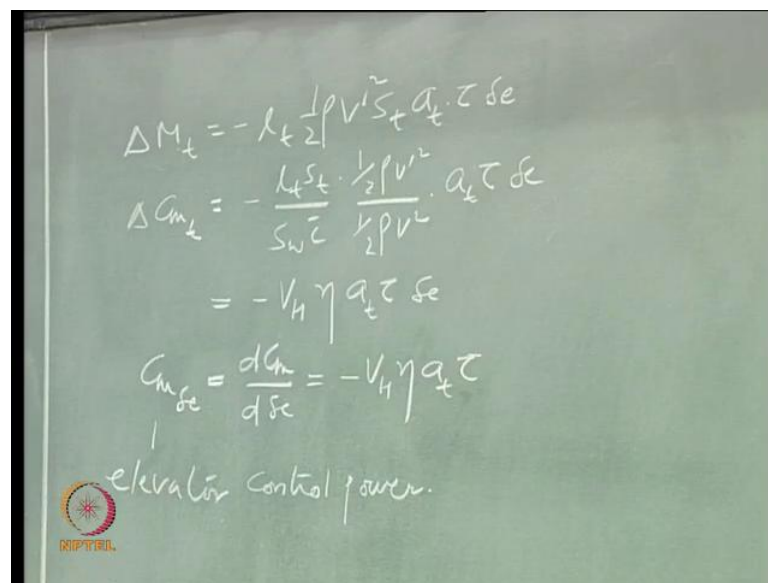 ΔM_t = - l_t 1/2 ρV'² S_t a_t · τ δe
ΔCm_t = - (l_t S_t)/(S_w c̄) · (1/2 ρV'²)/(1/2 ρV²) · a_t τ δe
= - V_H η a_t τ δe
Cm_δe = dCm/dδe = - V_H η a_t τ
elevator control power.
NPTEL